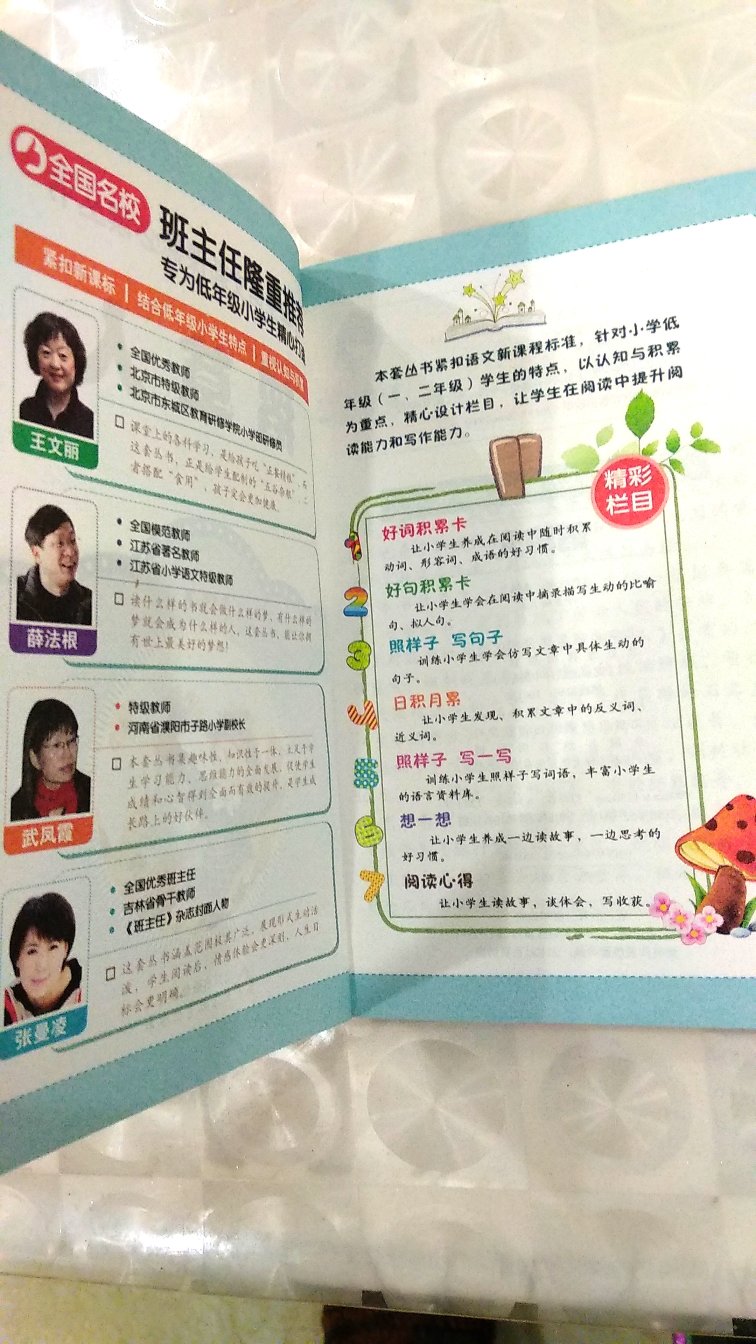 全国名校
班主任隆重推荐
专为低年级小学生精心打造
紧扣新课标 | 结合低年级小学生特点 | 重视认知与积累
全国优秀教师
北京市特级教师
北京市东城区教育研修学院小学部研修员
王文丽
课堂上的各科学习，是给孩子吃“正餐精粮”，而
这套丛书，正是给学生配制的“五谷杂粮”，二
者搭配“食用”，孩子定会更加健康。
全国模范教师
江苏省著名教师
江苏省小学语文特级教师
薛法根
读什么样的书就会做什么样的梦，有什么样的
梦就会成为什么样的人，这套丛书，能让你拥
有世上最美好的梦想！
特级教师
河南省濮阳市子路小学副校长
武凤霞
本套丛书集趣味性、知识性于一体，立足于学
生学习能力、思维能力的全面发展，促使学生
成绩和心智得到全面而有效的提升，是学生成
长路上的好伙伴。
全国优秀班主任
吉林省骨干教师
《班主任》杂志封面人物
张曼凌
这套丛书涵盖范围极其广泛，展现形式生动活
泼，学生阅读后，情感体验会更深刻，人生目
标会更明确。
本套丛书紧扣语文新课程标准，针对小学低
年级（一、二年级）学生的特点，以认知与积累
为重点，精心设计栏目，让学生在阅读中提升阅
读能力和写作能力。
精彩
栏目
1 好词积累卡
让小学生养成在阅读中随时积累
动词、形容词、成语的好习惯。
2 好句积累卡
让小学生学会在阅读中摘录描写生动的比喻
句、拟人句。
3 照样子 写句子
训练小学生学会仿写文章中具体生动的
句子。
4 日积月累
让小学生发现、积累文章中的反义词、
近义词。
5 照样子 写一写
训练小学生照样子写词语，丰富小学生
的语言资料库。
6 想一想
让小学生养成一边读故事，一边思考的
好习惯。
7 阅读心得
让小学生读故事，谈体会，写收获。